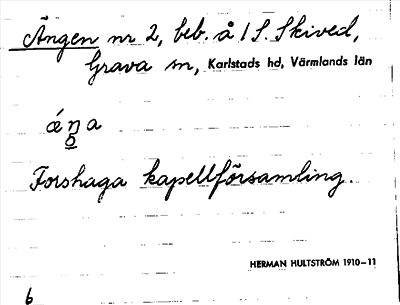 Ängen nr 2, beb. å 1 S. Skived,
Grava sn, Karlstads hd, Värmlands län
ǽŋ̥a
Forshaga kapellförsamling.
HERMAN HULTSTRÖM 1910–11
6